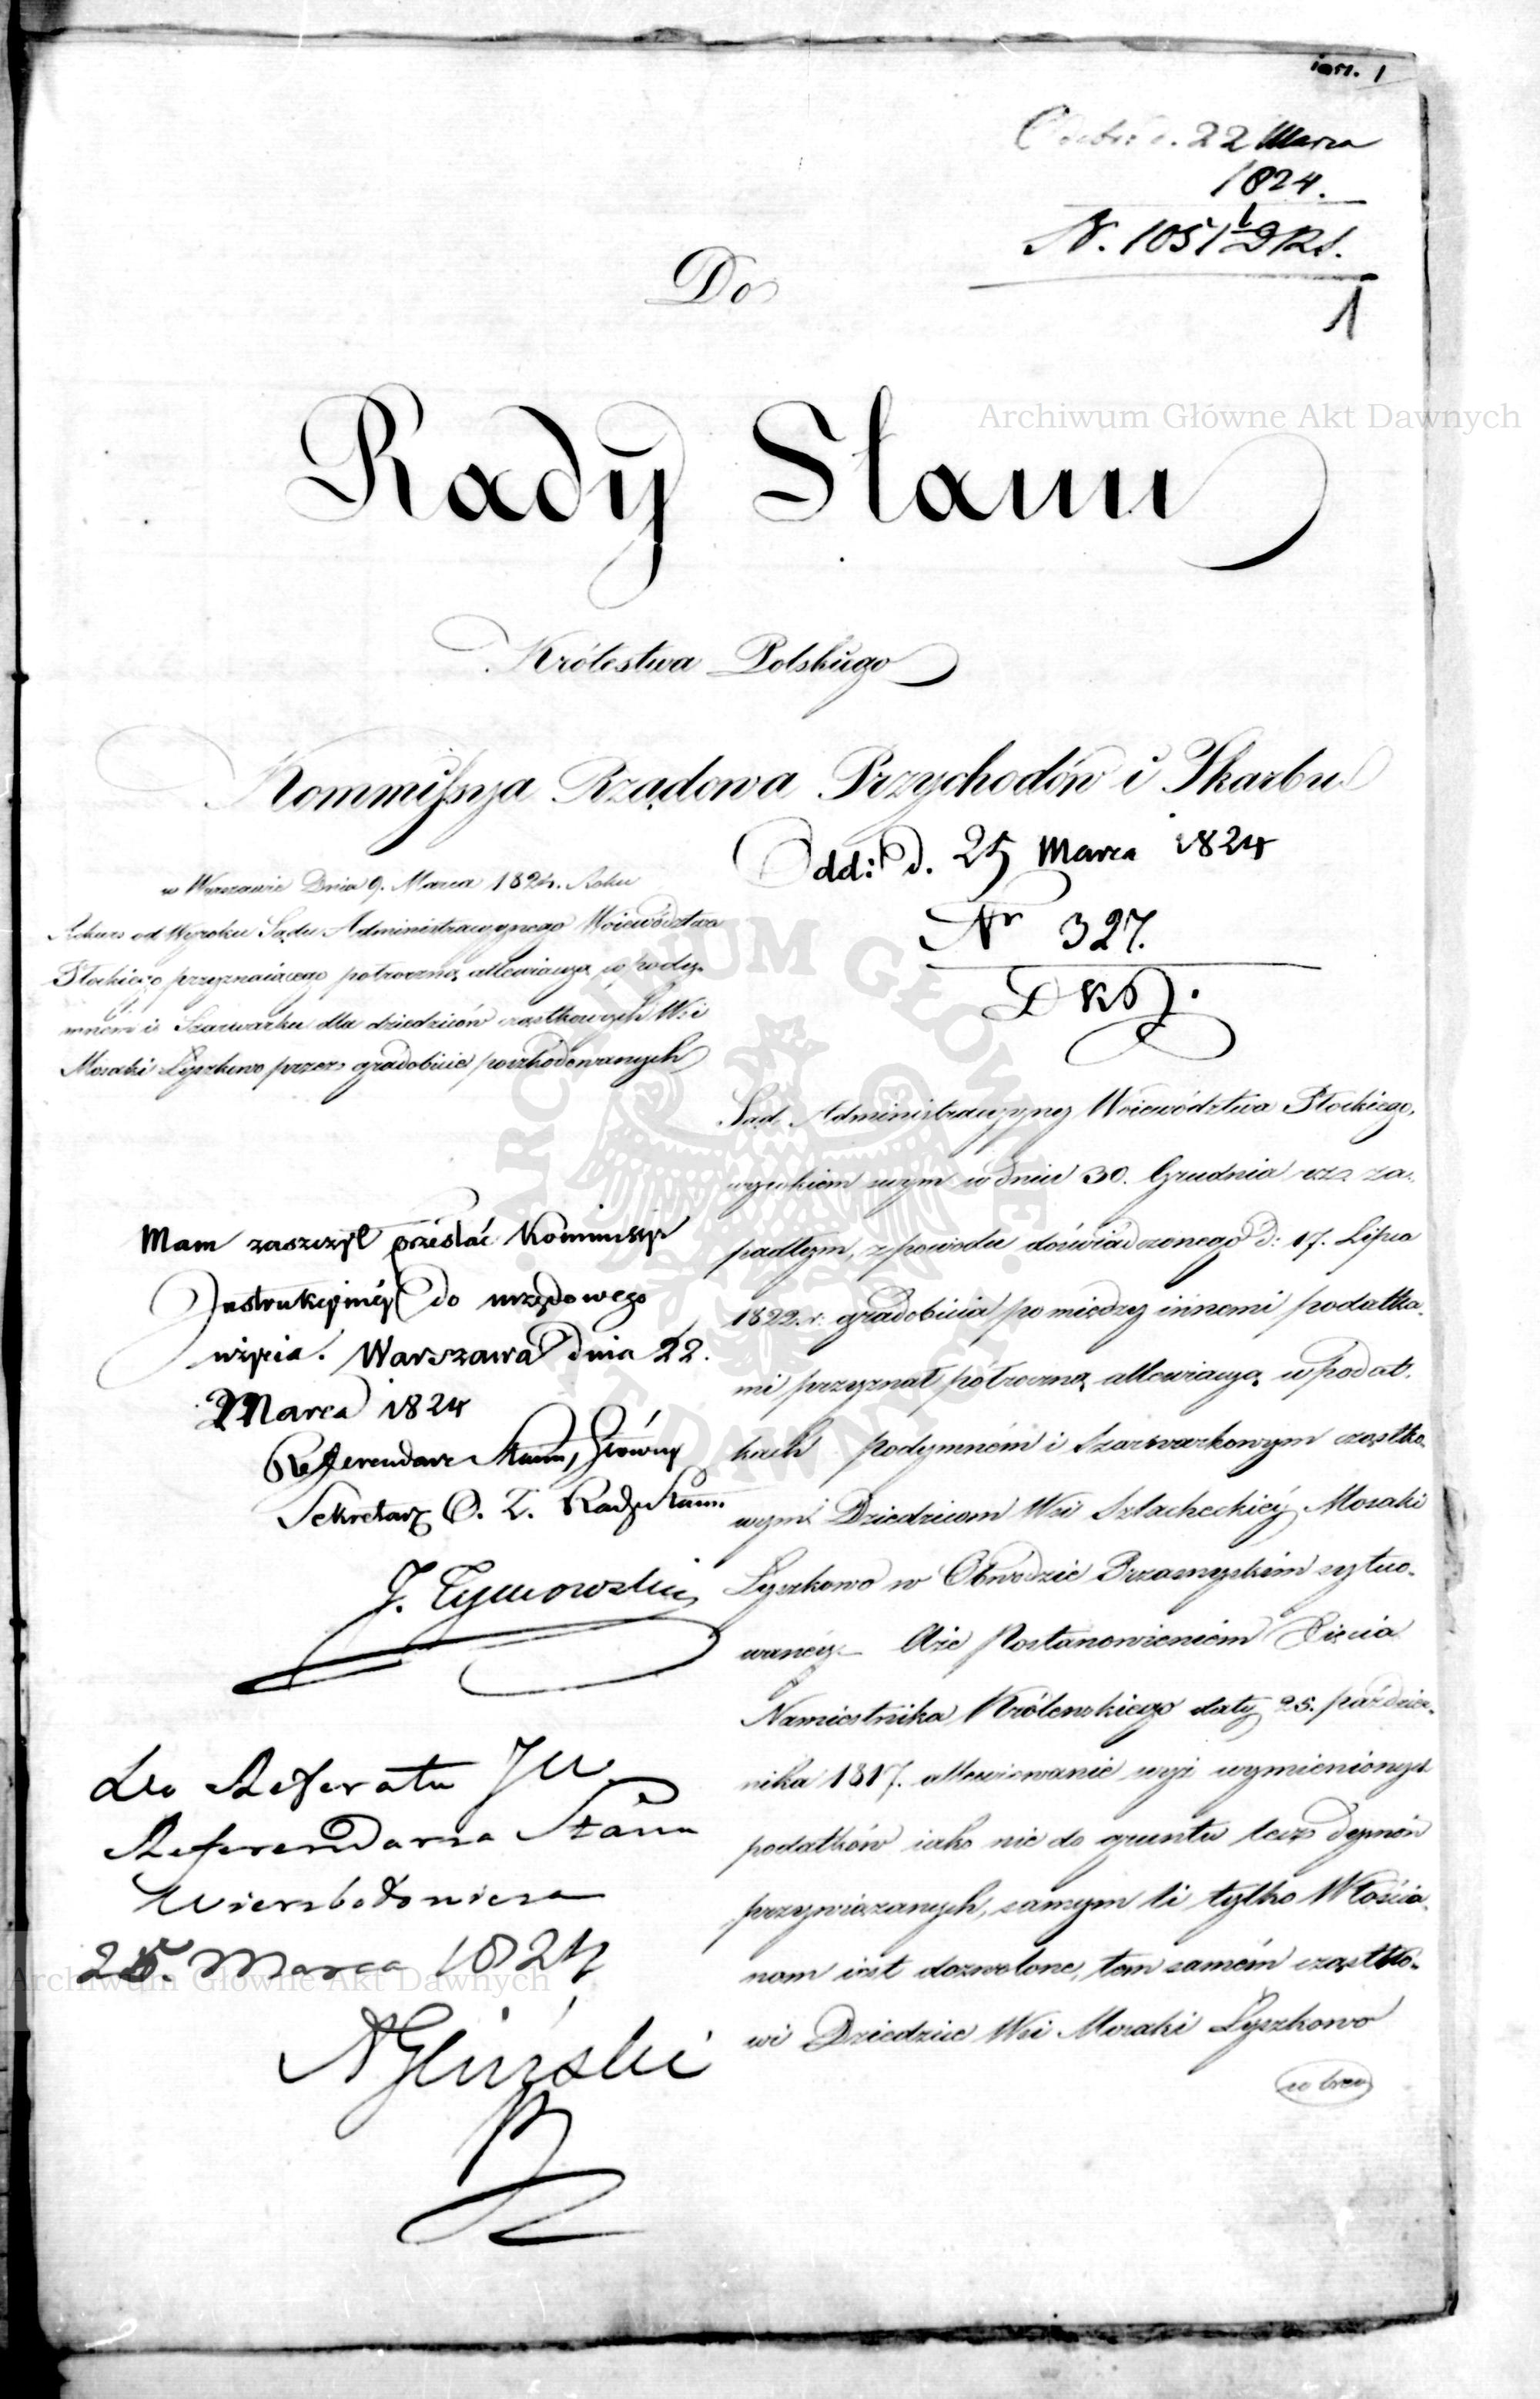 1
22 Marca
1824.
N. 1051
1
Do
Archiwum Główne Akt Dawnych
Rady Stanu
Królestwa Polskiego
Kommissya Rządowa Przychodów i Skarbu
w Warszawie Dnia 9. Marca 1824. Roku
Rekurs od Wyroku Sądu Administracyynego Woiewództwa
Płockiego przyznaiącego półroczną allewiacyą w pody-
mném i Szarwarku dla dziedziców cząstkowych Wsi
Mosaki Łyszkowo przez gradobicie poszkodowanych
Odd: d. 25 Marca 1824
Nr 327.
Mam zaszczyt przesłać Kommissyi
Instrukcyinéy do urzędowego
użycia. Warszawa dnia 22.
Marca 1824
Referendarz Stanu, Główny
Sekretarz Rady Stanu
J. Tymowski
Do Referatu JW
Referendarza Stanu
Wierzbołowicza
25. Marca 1824
Archiwum Główne Akt Dawnych
Sąd Administracyyny Woiewództwa Płockiego,
wyrokiem swym w dniu 30. Grudnia za-
padłym, z powodu doświadczonego d: 17. Lipca
1822. r: gradobicia pomiędzy innemi podatka-
mi przyznał półroczną allewiacyą w podat-
kach podymném i Szarwarkowym cząstko-
wym Dziedzicom Wsi Szlacheckiéy Mosaki
Łyszkowo w Obwodzie Przasnyskim sytuo-
wanéy. Aże Postanowieniem Xięcia
Namiestnika Królewskiego daty 25. Paździer-
nika 1817. allewiowanie wyż wymienionych
podatków iako nie do gruntu lecz dymów
przywiązanych, samym li tylko Włościa-
nom iest dozwolone, tem samém cząstko-
wi Dziedzice Wsi Mosaki Łyszkowo
ARCHIWUM GŁÓWNE AKT DAWNYCH